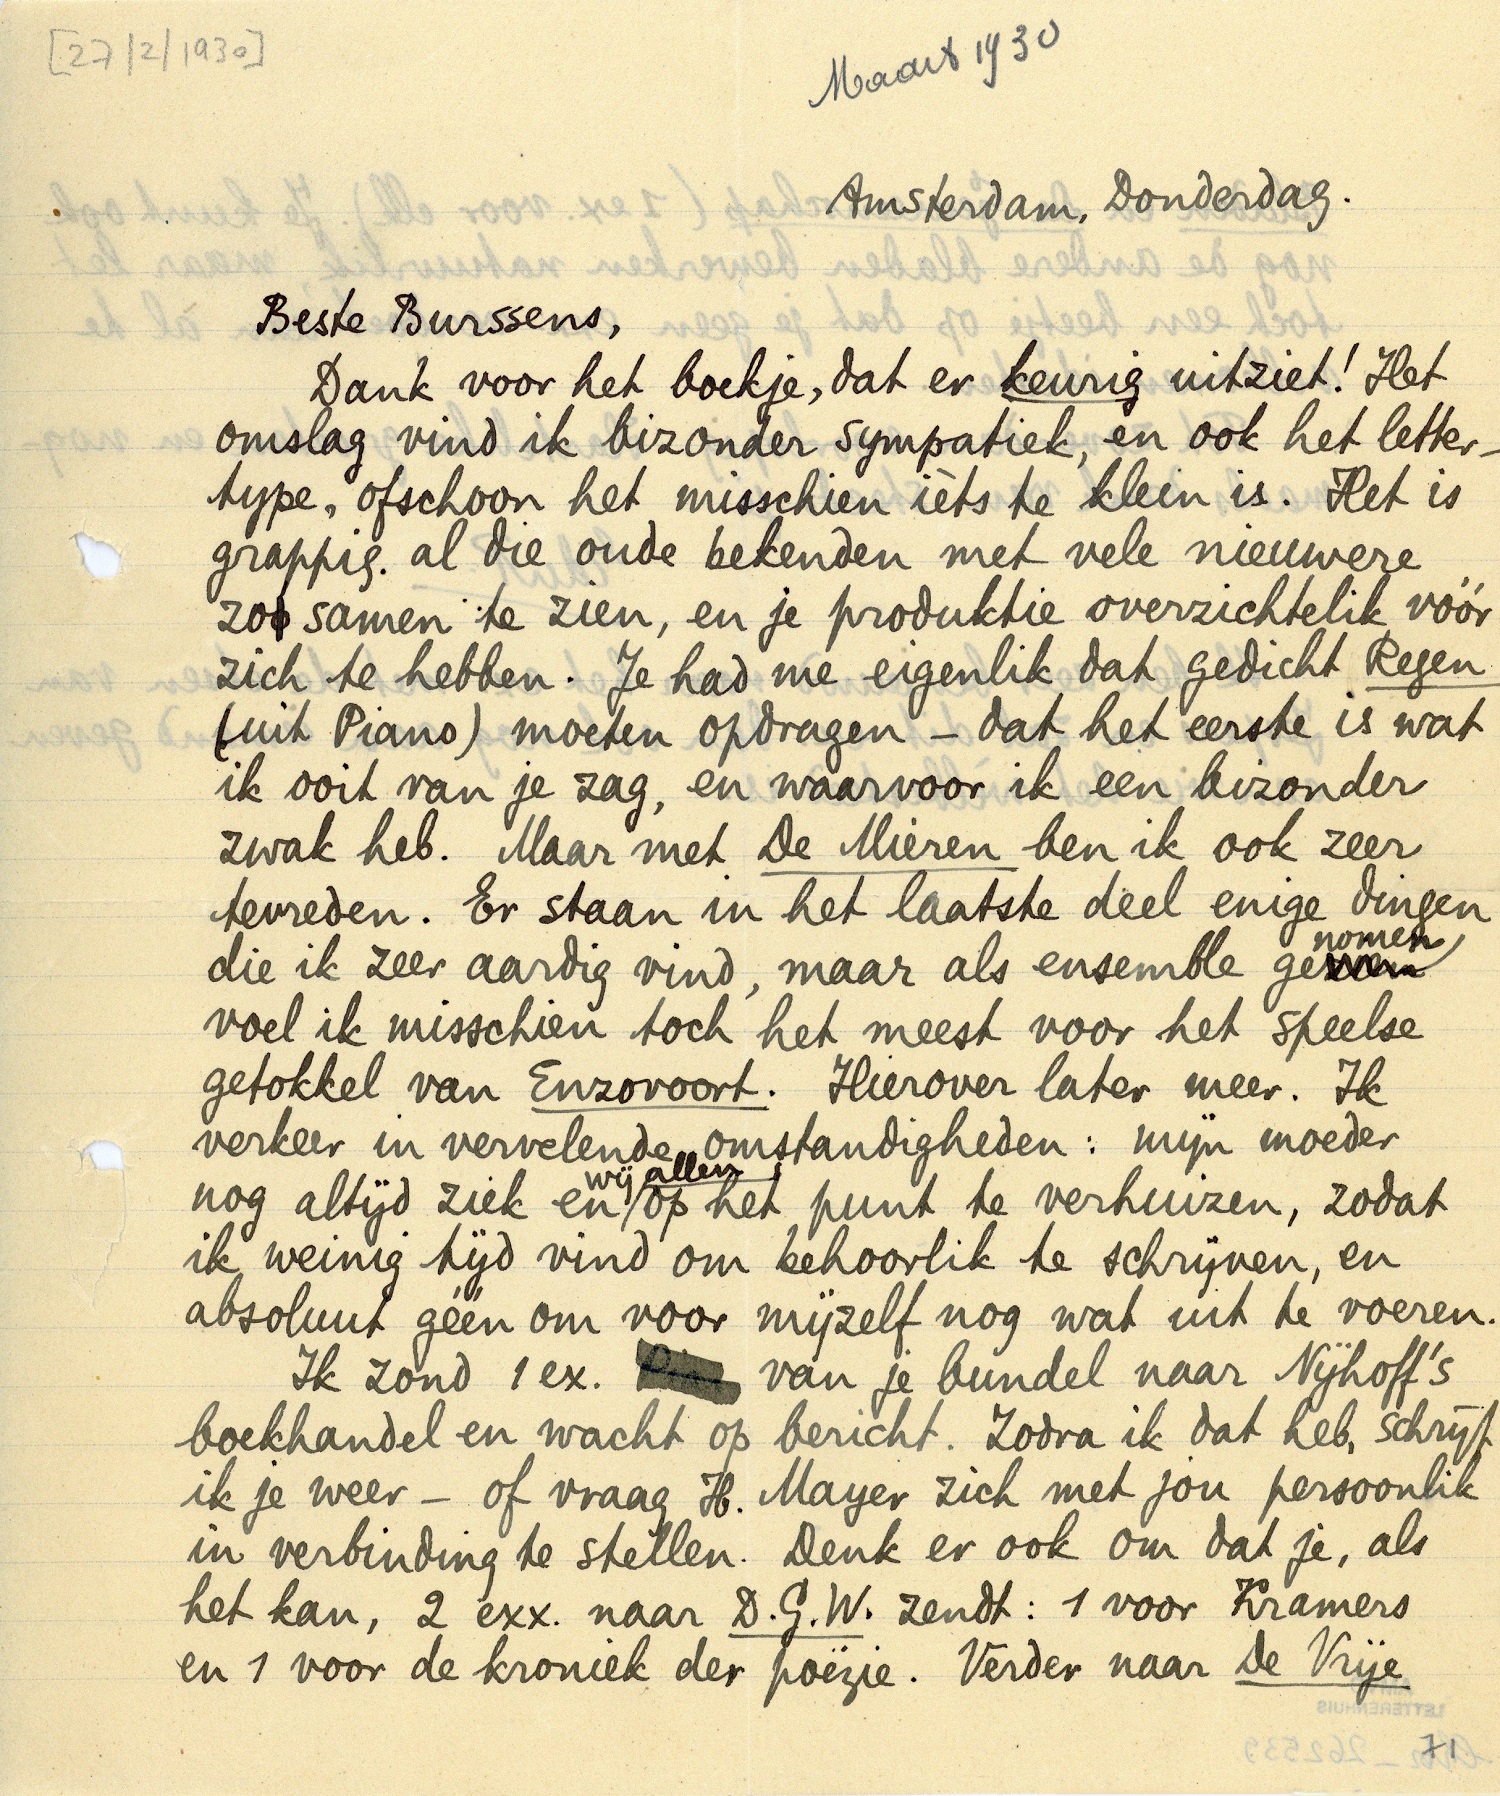 [27/2/1930]
Maart 1930
Amsterdam, Donderdag.
Beste Burssens,
Dank voor het boekje, dat er keurig uitziet! Het
omslag vind ik bizonder sympatiek, en ook het letter-
type, ofschoon het misschien iets te klein is. Het is
grappig. al die oude bekenden met vele nieuwere
zo samen te zien, en je produktie overzichtelik vóór
zich te hebben. Je had me eigenlik dat gedicht Regen
(uit Piano) moeten opdragen – dat het eerste is wat
ik ooit van je zag, en waarvoor ik een bizonder
zwak heb. Maar met De Mieren ben ik ook zeer
tevreden. Er staan in het laatste deel enige dingen
die ik zeer aardig vind, maar als ensemble genomen
voel ik misschien toch het meest voor het speelse
getokkel van Enzovoort. Hierover later meer. Ik
verkeer in vervelende omstandigheden: mijn moeder
nog altijd ziek en wij allen op het punt te verhuizen, zodat
ik weinig tijd vind om behoorlik te schrijven, en
absoluut géén om voor mijzelf nog wat uit te voeren.
Ik zond 1 ex. van je bundel naar Nijhoff's
boekhandel en wacht op bericht. Zodra ik dat heb, schrijf
ik je weer – of vraag H. Mayer zich met jou persoonlik
in verbinding te stellen. Denk er ook om dat je, als
het kan, 2 exx. naar D.G.W. zendt: 1 voor Kramers
en 1 voor de kroniek der poëzie. Verder naar De Vrije
LETTERENHUIS
262539
71